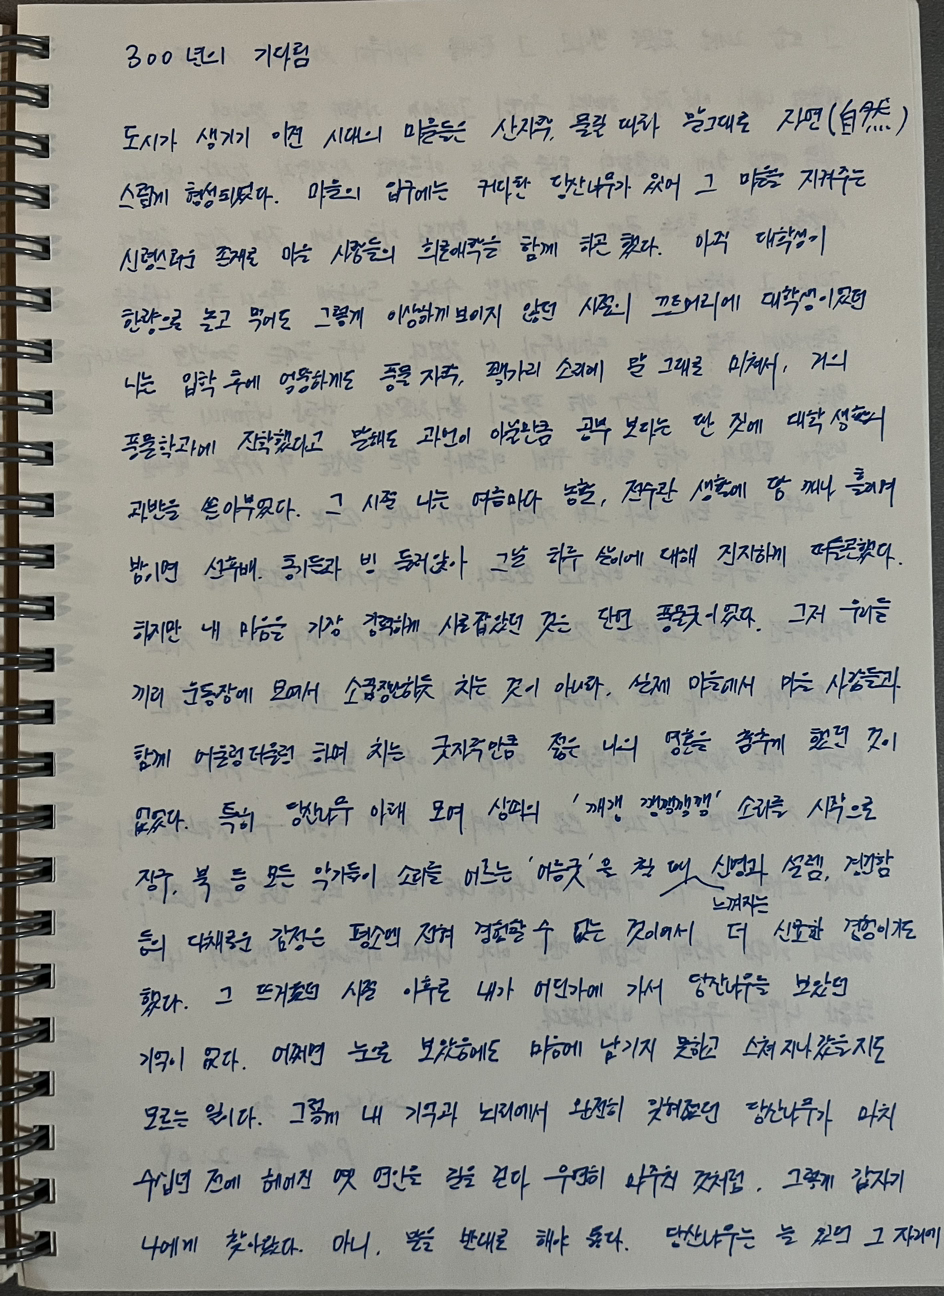 300년의 기다림
도시가 생기기 이전 시대의 마을들은 산자락, 물길 따라 말그대로 자연(自然)
스럽게 형성되었다. 마을의 입구에는 커다란 당산나무가 있어 그 마을을 지켜주는
신령스러운 존재로 마을 사람들의 희로애락을 함께 하곤 했다. 아직 대학생이
한량으로 놀고 먹어도 그렇게 이상하게 보이지 않던 시절의 끄트머리에 대학생이었던
나는 입학 후에 엉뚱하게도 풍물 자락, 꽹가리 소리에 말 그대로 미쳐서, 거의
풍물학과에 진학했다고 말해도 과언이 아닐만큼 공부 보다는 딴 짓에 대학 생활의
과반을 쏟아부었다. 그 시절 나는 여름마다 농활, 전수관 생활에 땀 깨나 흘리며
밤이면 선후배, 동기들과 빙 둘러앉아 그날 하루 삶에 대해 진지하게 떠들곤했다.
하지만 내 마음을 가장 강력하게 사로잡았던 것은 단연 풍물굿이었다. 그저 우리들
끼리 운동장에 모여서 소꿉장난하듯 치는 것이 아니라, 실제 마을에서 마을 사람들과
함께 어울렁더울렁 하며 치는 굿자락만큼 젊은 나의 영혼을 춤추게 했던 것이
없었다. 특히 당산나무 아래 모여 상쇠의 '깨갱 갱갱갱갱' 소리를 시작으로
장구, 북 등 모든 악기들이 소리를 어르는 '어름굿'을 칠 때 느껴지는 신명과 설렘, 경건함
등의 다채로운 감정은 평소엔 전혀 경험할 수 없는 것이어서 더 신묘한 경험이기도
했다. 그 뜨거웠던 시절 이후로 내가 어딘가에 가서 당산나무를 보았던
기억이 없다. 어쩌면 눈으로 보았음에도 마음에 남기지 못하고 스쳐 지나갔을지도
모르는 일이다. 그렇게 내 기억과 뇌리에서 완전히 잊혀졌던 당산나무가 마치
수십년 전에 헤어진 옛 연인을 길을 걷다 우연히 마주친 것처럼, 그렇게 갑자기
나에게 찾아왔다. 아니, 말을 반대로 해야 옳다. 당산나무는 늘 있던 그 자리에